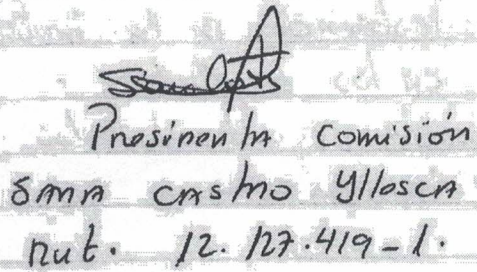 Presidenta comisión
SARA CASTRO Yllosca
Rut. 12.127.419-1.